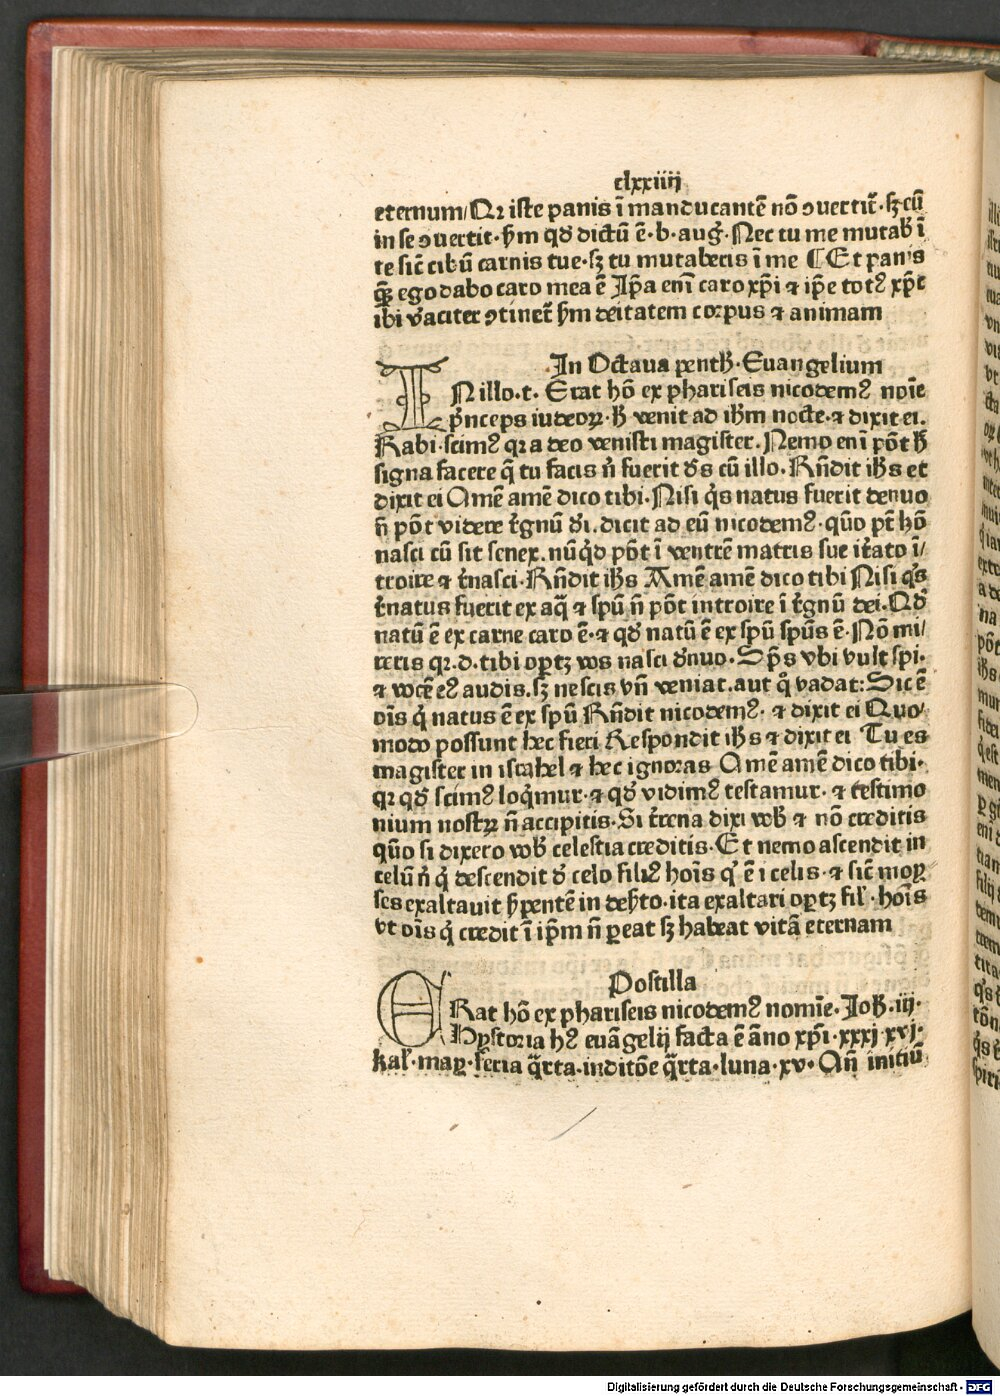 clxxiiij
eternum/Qꝛ iste panis ī manducantē nō ꝯuertit᷑·sꝫ cū
in se ꝯuertit·ẜm qđ dictū ē·b·aug᷒·Nec tu me mutab᷒ ī
te sic̄ cibū carnis tue·sꝫ tu mutaberis ī me ⸿Et panis
quē ego dabo caro mea ē Ip̄a enī caro xp̄i ⁊ ip̄e totꝰ xp̄c
ibi v᷒aciter ꝯtinet᷑ ẜm deitatem corpus ⁊ animam
In Octava penth᷒·Euangelium
INillo·t· Erat hō ex phariseis nicodemꝰ noīe
p᷒nceps iudeoꝝ·h᷒ venit ad ih̄m nocte·⁊ dixit ei.
Rabi·scimꝰ qꝛ a deo venisti magister·Nemo enī pōt h᷒
signa facere q̄ tu facis n̄ fuerit ds̄ cū illo·Rn̄dit ih̄s et
dixit ei Amē amē dico tibi·Nisi q᷒s natus fuerit denuo
n̄ pōt videre r̄gnū d̄i. dicit ad eū nicodemꝰ·quō pt̄ hō
nasci cū sit senex. nūq᷒d pōt ī ventrē matris sue it̄ato ī/
troire ⁊ r̄nasci·Rn̄dit ih̄s Amē amē dico tibi Nisi q᷒s
r̄natus fuerit ex aq̄ ⁊ spū n̄ pōt introire ī r̄gnū dei·Qđ
natū ē ex carne caro ē·⁊ qđ natū ē ex spū spūs ē·Nō mi/
reris qꝛ·d·tibi oꝑtꝫ vos nasci d̄nuo·Sp̄s vbi vult spi·
⁊ vocē eꝰ audis. sꝫ nescis vn̄ veniat. aut q᷒ vadat:Sic ē
oīs q᷒ natus ē ex spū Rn̄dit nicodemꝰ·⁊ dixit ei Quo/
modo possunt hec fieri Respondit ih̄s ⁊ dixit ei Tu es
magister in israhel ⁊ hec ignoras Amē amē dico tibi·
qꝛ qđ scimꝰ loq᷒mur·⁊ qđ vidimꝰ testamur·⁊ testimo
nium nostꝝ n̄ accipitis·Si t̄rena dixi vob᷒ ⁊ nō creditis
quō si dixero vob᷒ celestia creditis·Et nemo ascendit in
celū n̄ q᷒ descendit d̄ celo filiꝰ hoīs q᷒ ē ī celis·⁊ sic̄ moy
ses exaltauit ẜpentē in deẜto·ita exaltari oꝑtꝫ fil᷒·hoīs
vt oīs q᷒ credit ī ip̄m n̄ ꝑeat sꝫ habeat vitā eternam
Postilla
ERat hō ex phariseis nicodemꝰ nomīe·Joh᷒·iij·
Hystoria hꝰ euāgelij facta ē āno xp̄i·xxxj·xvj·
kal᷒·may·feria q̄rta·inditōe q̄rta·luna·xv·An̄ initiū
Digitalisierung gefördert durch die Deutsche Forschungsgemeinschaft - DFG